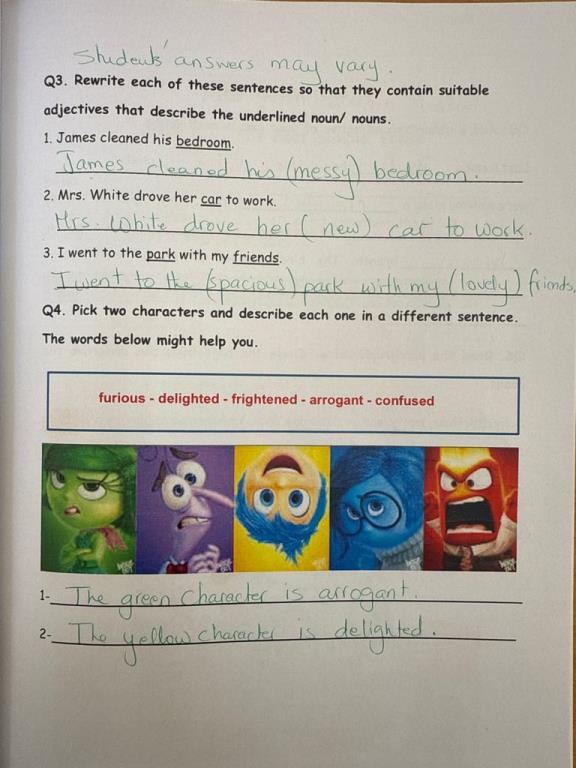 Students' answers may vary.
Q3. Rewrite each of these sentences so that they contain suitable
adjectives that describe the underlined noun/ nouns.
1. James cleaned his bedroom.
James cleaned his (messy) bedroom.
2. Mrs. White drove her car to work.
Mrs. White drove her (new) car to work.
3. I went to the park with my friends.
I went to the (spacious) park with my (lovely) friends,
Q4. Pick two characters and describe each one in a different sentence.
The words below might help you.
furious - delighted - frightened - arrogant - confused
1- The green character is arrogant.
2- The yellow character is delighted.